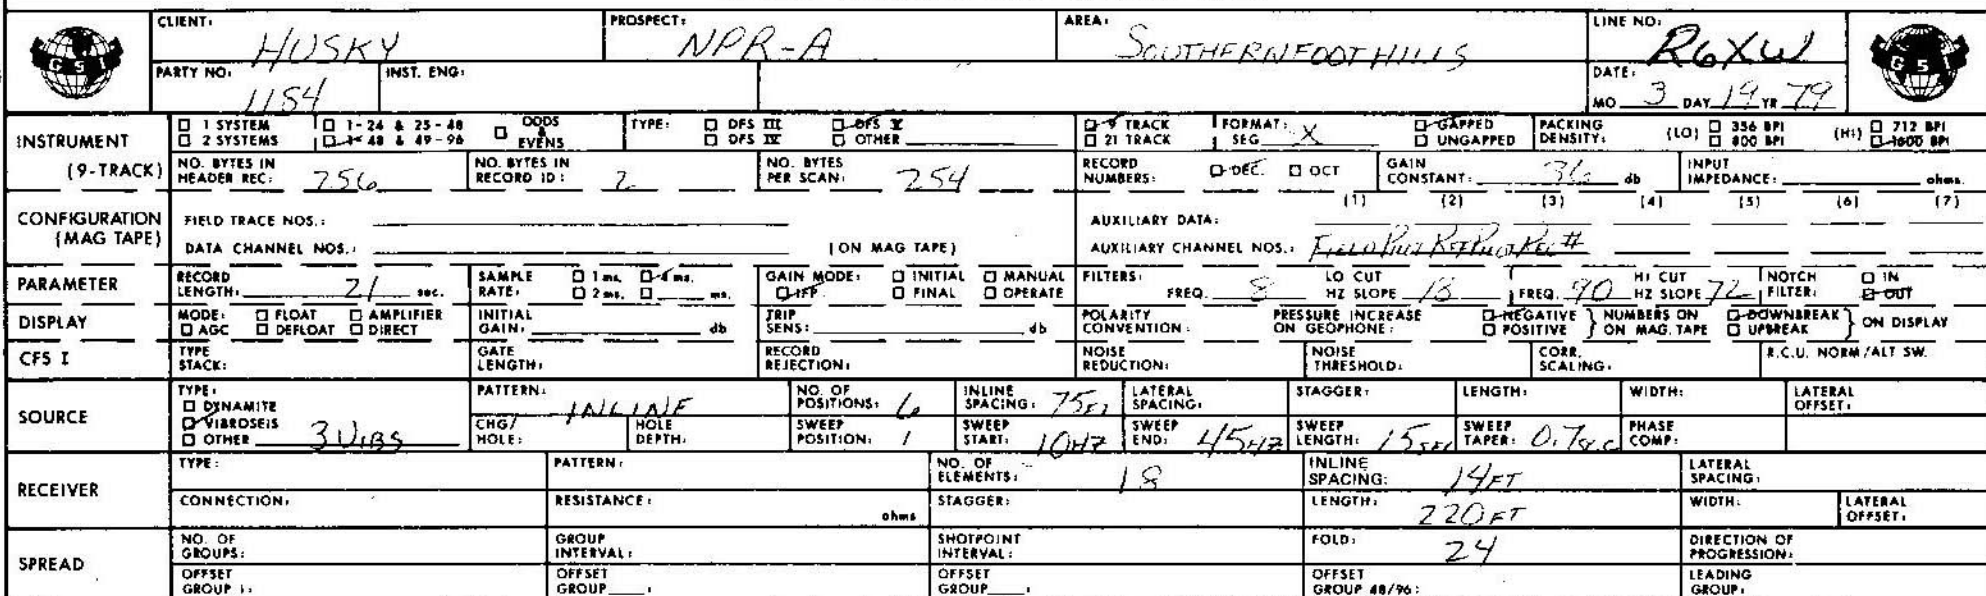 CLIENT: HUSKY PROSPECT: NPR-A AREA: SOUTHERN FOOTHILLS LINE NO: R6XW
GSI GSI
PARTY NO: 1184 INST. ENG: DATE: MO 3 DAY 19 YR 79
INSTRUMENT (9-TRACK)
□ 1 SYSTEM □ 1-24 & 25-48 □ ODDS & EVENS TYPE: □ DFS III □ DFS V □ 9 TRACK FORMAT: SEG X □ GAPPED PACKING DENSITY: (LO) □ 356 BPI (HI) □ 712 BPI
□ 2 SYSTEMS □ 1-48 & 49-96 □ DFS IV □ OTHER □ 21 TRACK □ UNGAPPED □ 800 BPI □ 1600 BPI
NO. BYTES IN HEADER REC: 256 NO. BYTES IN RECORD ID: 2 NO. BYTES PER SCAN: 254 RECORD NUMBERS: □ DEC. □ OCT GAIN CONSTANT: 36 db INPUT IMPEDANCE: ohms.
CONFIGURATION (MAG TAPE)
(1) (2) (3) (4) (5) (6) (7)
FIELD TRACE NOS.: AUXILIARY DATA:
DATA CHANNEL NOS.: (ON MAG TAPE) AUXILIARY CHANNEL NOS.: FIELD PILOT REF PILOT REC #
PARAMETER
RECORD LENGTH: 21 sec. SAMPLE RATE: □ 1 ms. □ 4 ms. □ 2 ms. □ ms. GAIN MODE: □ INITIAL □ MANUAL □ IFP □ FINAL □ OPERATE FILTERS: LO CUT FREQ. 8 HZ SLOPE 18 HI CUT FREQ. 90 HZ SLOPE 72 NOTCH FILTER: □ IN □ OUT
DISPLAY
MODE: □ FLOAT □ AMPLIFIER □ AGC □ DEFLOAT □ DIRECT INITIAL GAIN: db TRIP SENS: db POLARITY CONVENTION: PRESSURE INCREASE ON GEOPHONE: □ NEGATIVE □ POSITIVE } NUMBERS ON MAG. TAPE □ DOWNBREAK □ UPBREAK } ON DISPLAY
CFS I
TYPE STACK: GATE LENGTH: RECORD REJECTION: NOISE REDUCTION: NOISE THRESHOLD: CORR. SCALING: R.C.U. NORM/ALT SW.
SOURCE
TYPE: □ DYNAMITE □ VIBROSEIS □ OTHER 3 VIBS PATTERN: INLINE NO. OF POSITIONS: 6 INLINE SPACING: 75FT LATERAL SPACING: STAGGER: LENGTH: WIDTH: LATERAL OFFSET:
CHG/HOLE: HOLE DEPTH: SWEEP POSITION: 1 SWEEP START: 10HZ SWEEP END: 45HZ SWEEP LENGTH: 15SEC SWEEP TAPER: 0.7sec PHASE COMP:
RECEIVER
TYPE: PATTERN: NO. OF ELEMENTS: 18 INLINE SPACING: 14FT LATERAL SPACING:
CONNECTION: RESISTANCE: ohms STAGGER: LENGTH: 220FT WIDTH: LATERAL OFFSET:
SPREAD
NO. OF GROUPS: GROUP INTERVAL: SHOTPOINT INTERVAL: FOLD: 24 DIRECTION OF PROGRESSION:
OFFSET GROUP 1: OFFSET GROUP : OFFSET GROUP : OFFSET GROUP 48/96: LEADING GROUP: